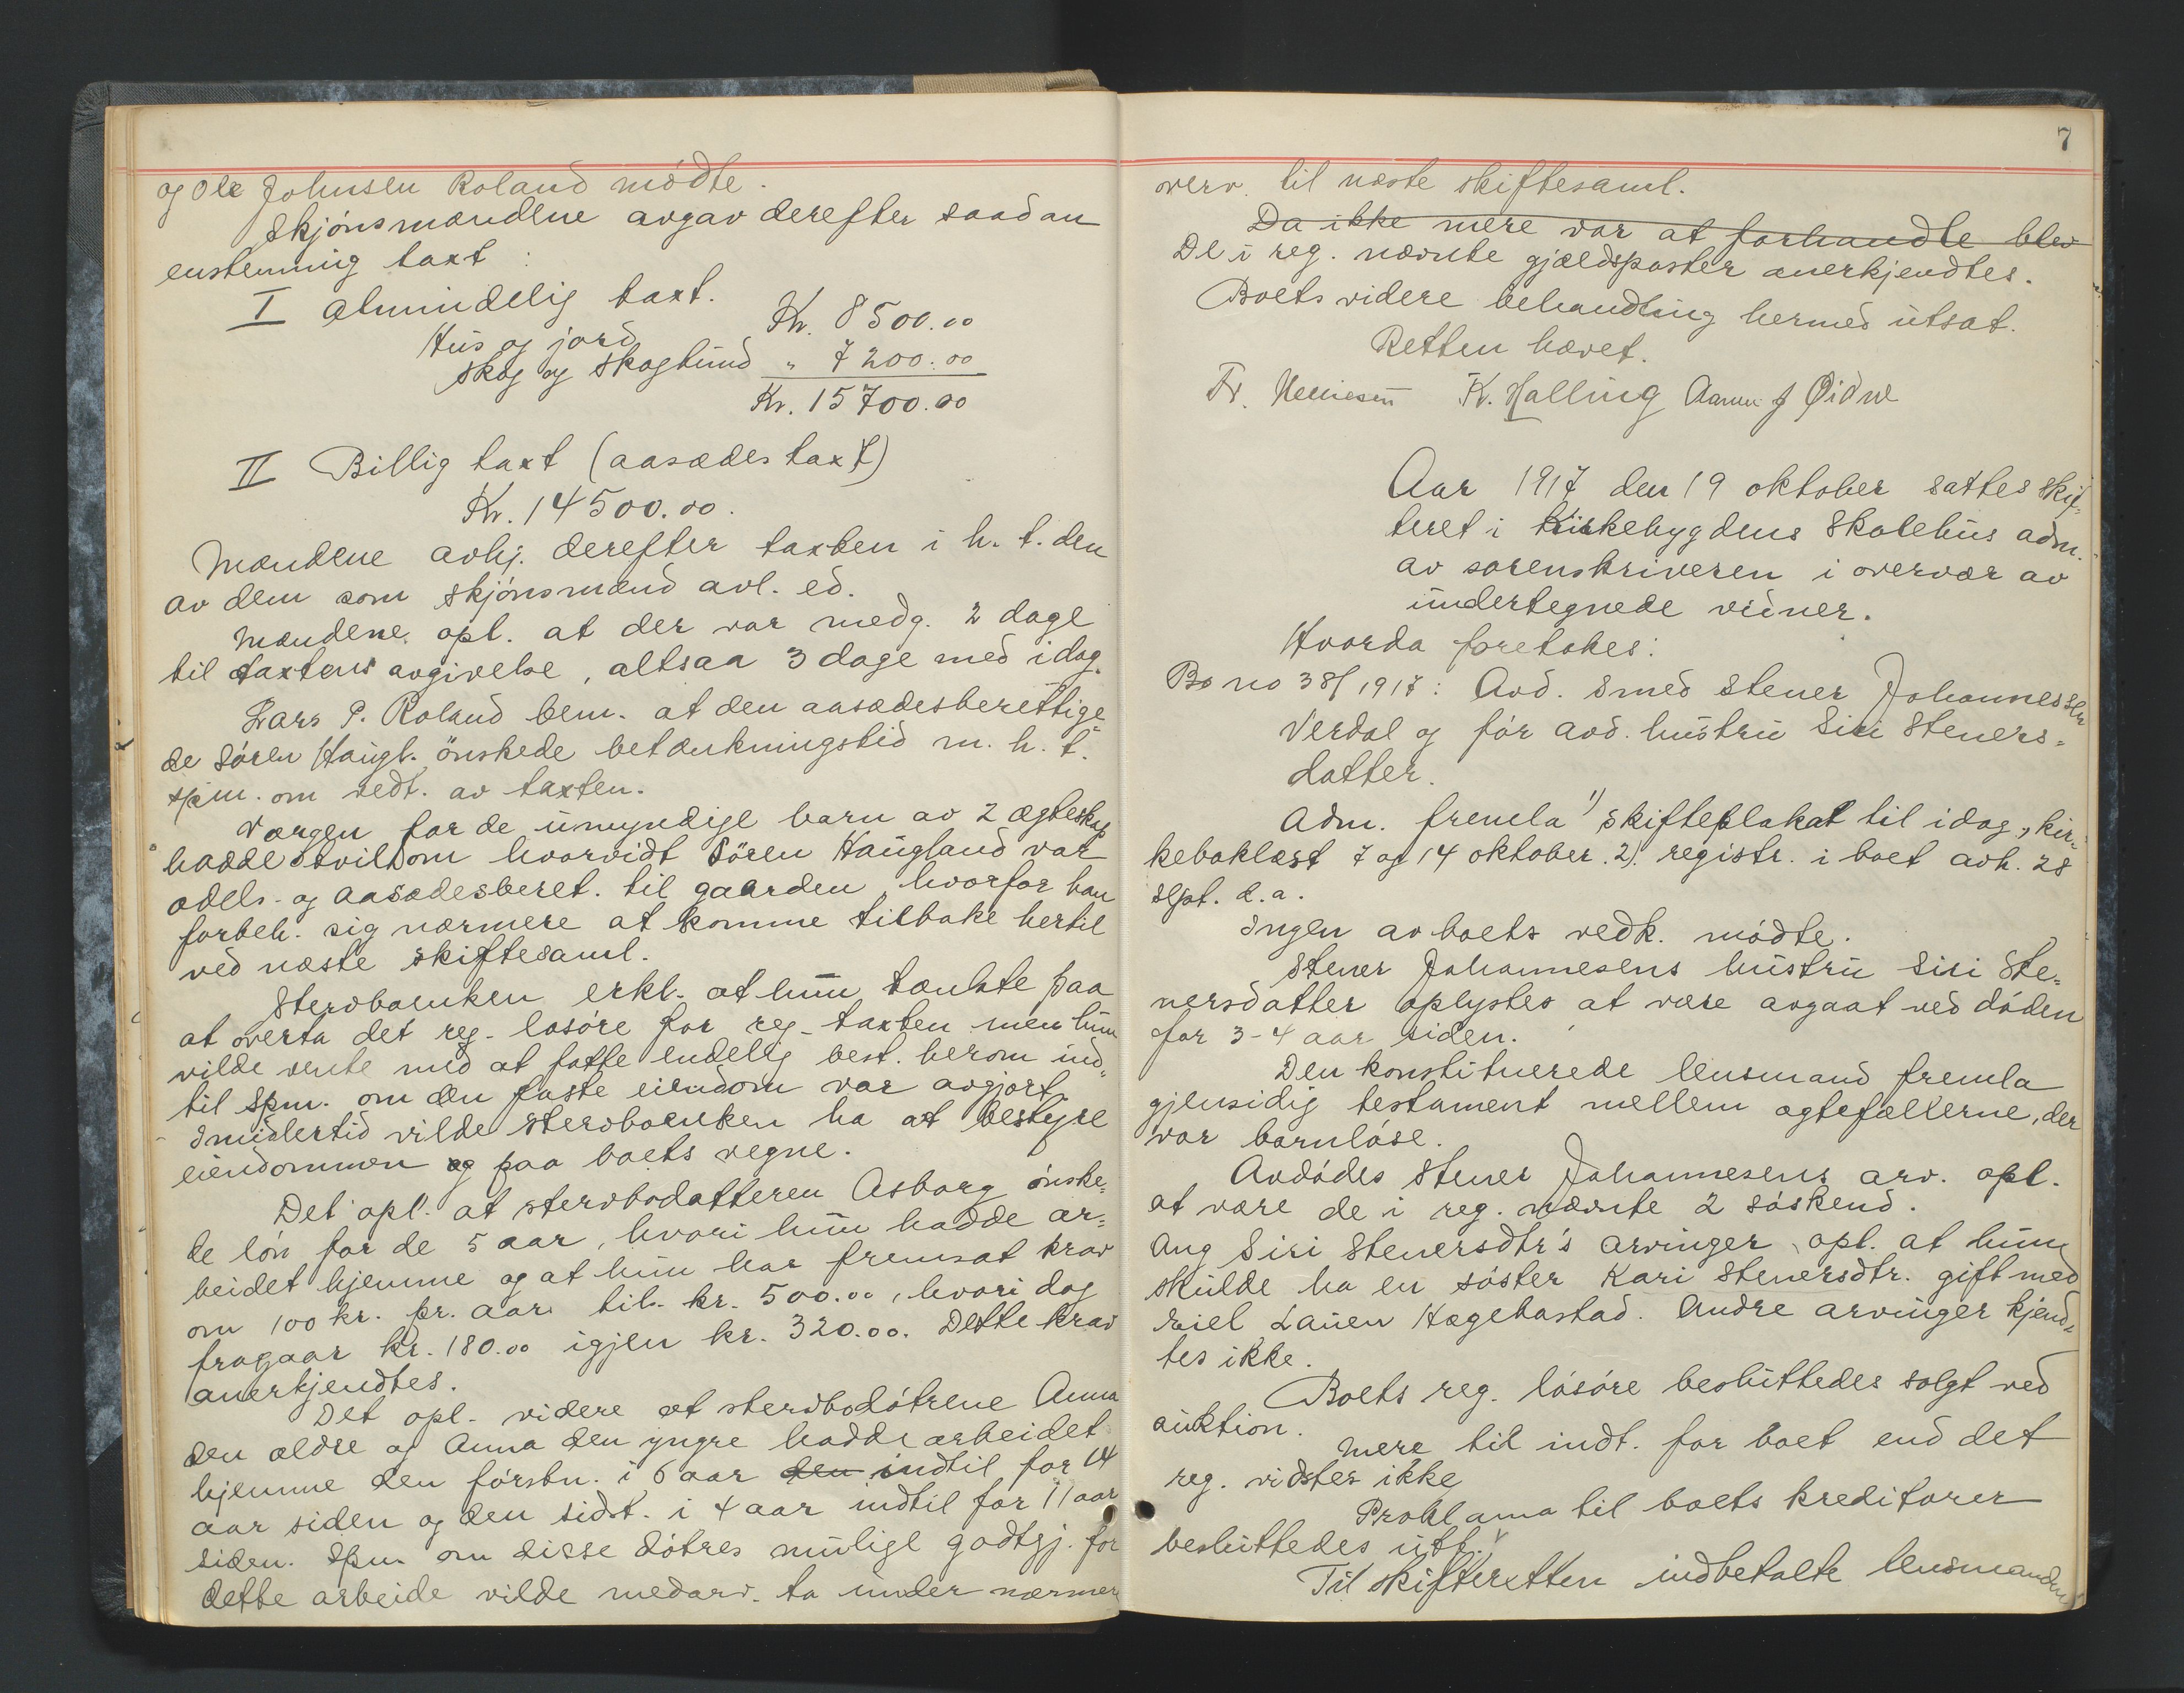 og Ole Johnsen Roland mødte.
Skjønsmændene avgav derefter saadan
enstemmig taxt:
I almindelig taxt.
Hus og jord Kr. 8500.00
Skog og skogbund " 7200.00
Kr. 15700.00
II Billig taxt (aasædestaxt)
Kr. 14500.00.
Mændene avhj. derefter taxten i h. t. den
av dem som skjønsmænd avl. ed.
Mændene opl. at der var medg. 2 dage
til taxtens avgivelse, altsaa 3 dage med idag.
Lars P. Roland bem. at den aasædesberettige-
de Søren Haugl. ønskede betænkningstid m. h. t.
spm. om vedt. av taxten.
Værgen for de umyndige barn av 2 ægteskap
hadde tvil om hvorvidt Søren Haugland var
odels- og aasædesberet. til gaarden, hvorfor han
forbeh. sig nærmere at komme tilbake hertil
ved næste skiftesaml.
Stervboenken erkl. at hun tænkte paa
at overta det reg. løsøre for reg. taxten men hun
vilde vente med at fatte endelig best. herom ind-
til spm. om den faste eiendom var avgjort.
Imidlertid vilde stervboenken ha at bestyre
eiendommen og paa boets regne.
Det opl. at stervbodatteren Asborg ønske-
de løn for de 5 aar, hvori hun hadde ar-
beidet hjemme og at hun har fremsat krav
om 100 kr. pr. aar til. kr. 500.00, hvori dog
fragaar kr. 180.00 igjen kr. 320.00. Dette krav
anerkjendtes.
Det opl. videre at stervbodøtrene Anna
den ældre og Anna den yngre hadde arbeidet
hjemme den førstn. i 6 aar den indtil for 14
aar siden og den sidst. i 4 aar indtil for 11 aar
siden. Spm. om disse døtres mulige godtgj. for
dette arbeide vilde medarv. ta under nærmere
7
overv. til næste skiftesaml.
Da ikke mere var at forhandle blev
De i reg. nævnte gjældsposter anerkjendtes.
Boets videre behandling hermed utsat.
Retten hævet.
Fr. K. Halling J Øidne
Aar 1917 den 19 oktober sattes skif-
teret i Kirkebygdens Skolehus adm.
av sorenskriveren i overvær av
undertegnede vidner.
Hvorda foretokes:
Bo no 38/1917: Avd. smed Stener Johannessen
Verdal og før avd. hustru Siri Steners-
datter.
Adm. fremla 1) skifteplakat til idag, kir-
kebaklæst 7 og 14 oktober. 2) registr. i boet avh. 28
sept. d.a.
Ingen av boets vedk. mødte.
Stener Johannesens hustru Siri Ste-
nersdatter oplystes at være avgaat ved døden
for 3-4 aar siden.
Den konstituerede lensmand fremla
gjensidig testament mellem ægtefællerne, der
var barnløse.
Avdødes Stener Johannesens arv. opl.
at være de i reg. nævnte 2 søskend.
Ang Siri Stenersdtr's arvinger opl. at hun
skulde ha en søster Kari Stenersdtr. gift med
Eiel Lauen Hægebostad. Andre arvinger kjend-
tes ikke.
Boets reg. løsøre besluttedes solgt ved
auktion.
Mere til indt. for boet end det
reg. vidstes ikke
Proklama til boets kreditorer
besluttedes utst.
Til skifteretten indbetalte lensmanden